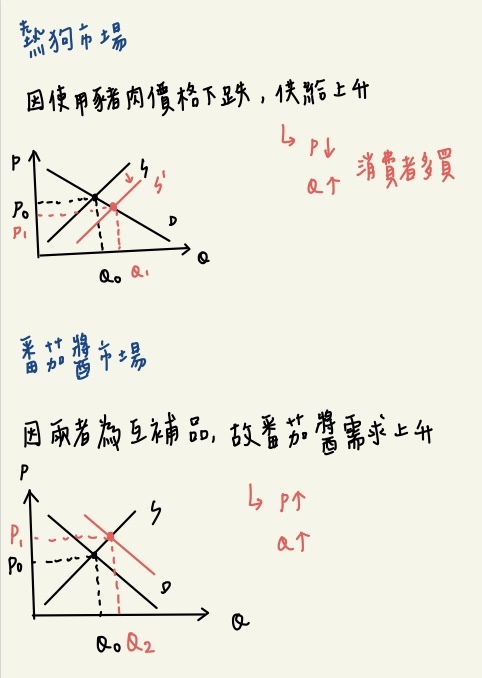 熱狗市場
因使用豬肉價格下跌，供給上升
↳ P↓
Q↑ 消費者多買
P
S
S'
P₀
P₁
D
Q₀ Q₁
Q
番茄醬市場
因兩者為互補品，故番茄醬需求上升
P
↳ P↑
Q↑
S
P₁
P₀
D
Q₀ Q₂
Q